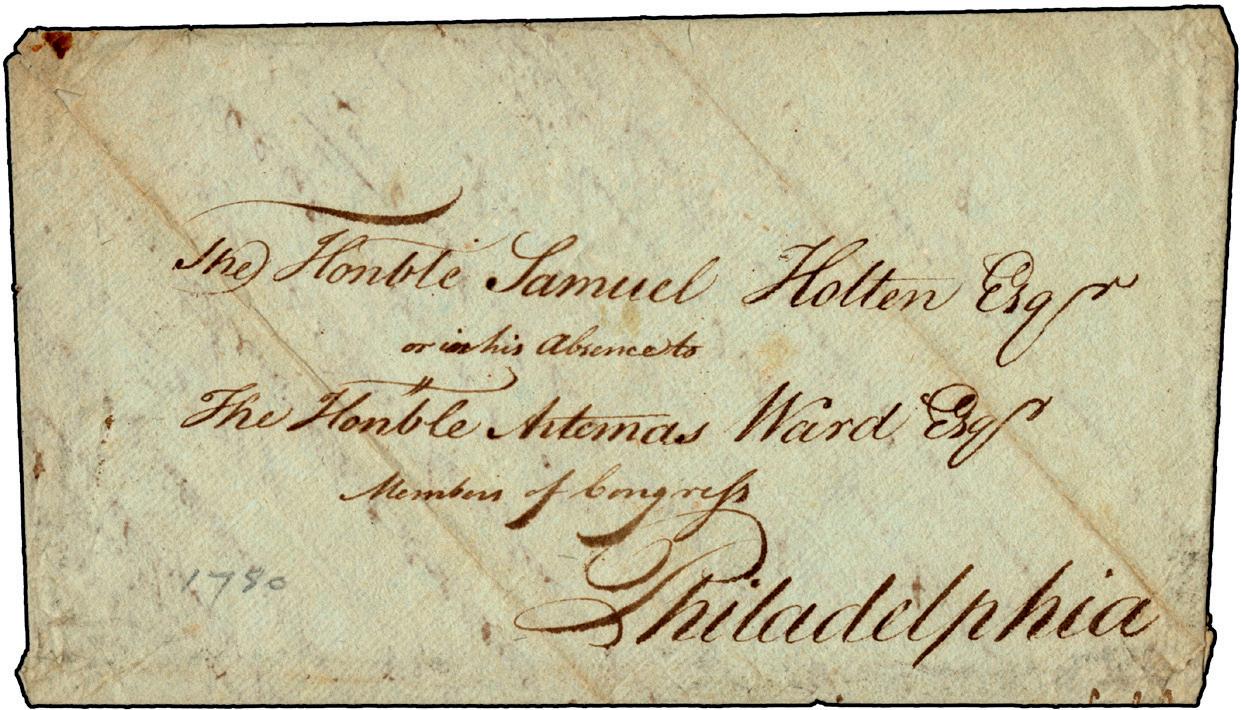 The Honble Samuel Holten Esqr
or in his Absence to
The Honble Artemas Ward Esqr
Members of Congress
Philadelphia
1780